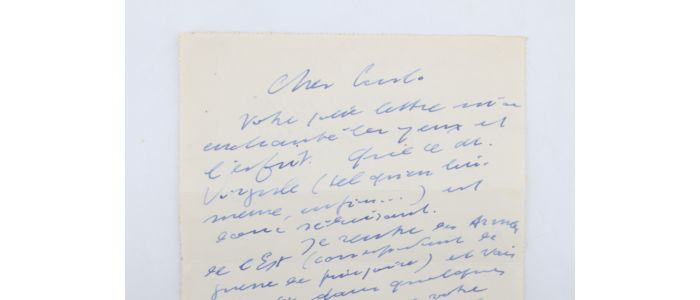 Cher Carlo
Votre jolie lettre m'a
enchanté les yeux et
l'esprit. Que ce
Virgile (tel qu'en lui-
même, enfin...) est
donc séduisant.
Je rentre des Armées
de l'Est (correspondant de
guerre de ) et vais
dans quelques
votre